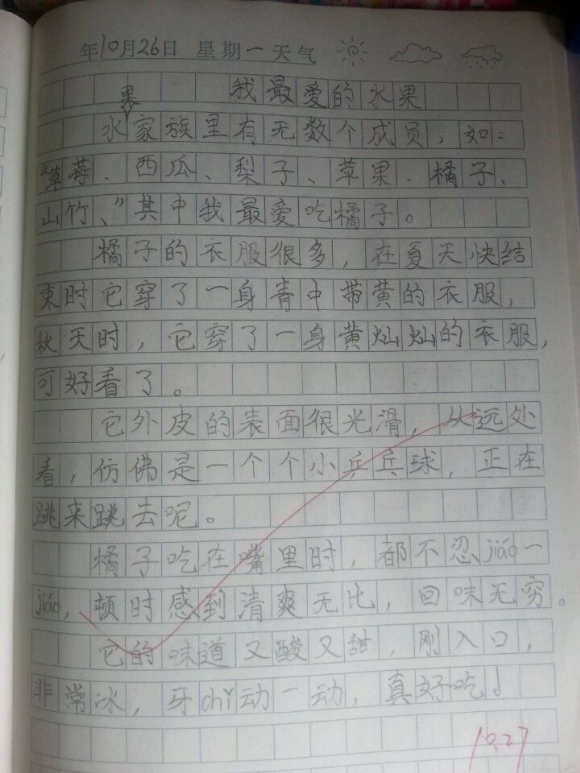 年10月26日 星期一天气
我最爱的水果
水果家族里有无数个成员，如：
“草莓、西瓜、梨子、苹果、橘子、
山竹、”其中我最爱吃橘子。
橘子的衣服很多，在夏天快结
束时它穿了一身青中带黄的衣服，
秋天时，它穿了一身黄灿灿的衣服，
可好看了。
它外皮的表面很光滑，从远处
看，仿佛是一个个小乒乓球，正在
跳来跳去呢。
橘子吃在嘴里时，都不忍jiáo一
jiáo，顿时感到清爽无比，回味无穷。
它的味道又酸又甜，刚入口，
非常冰，牙chǐ动一动，真好吃！
10.27